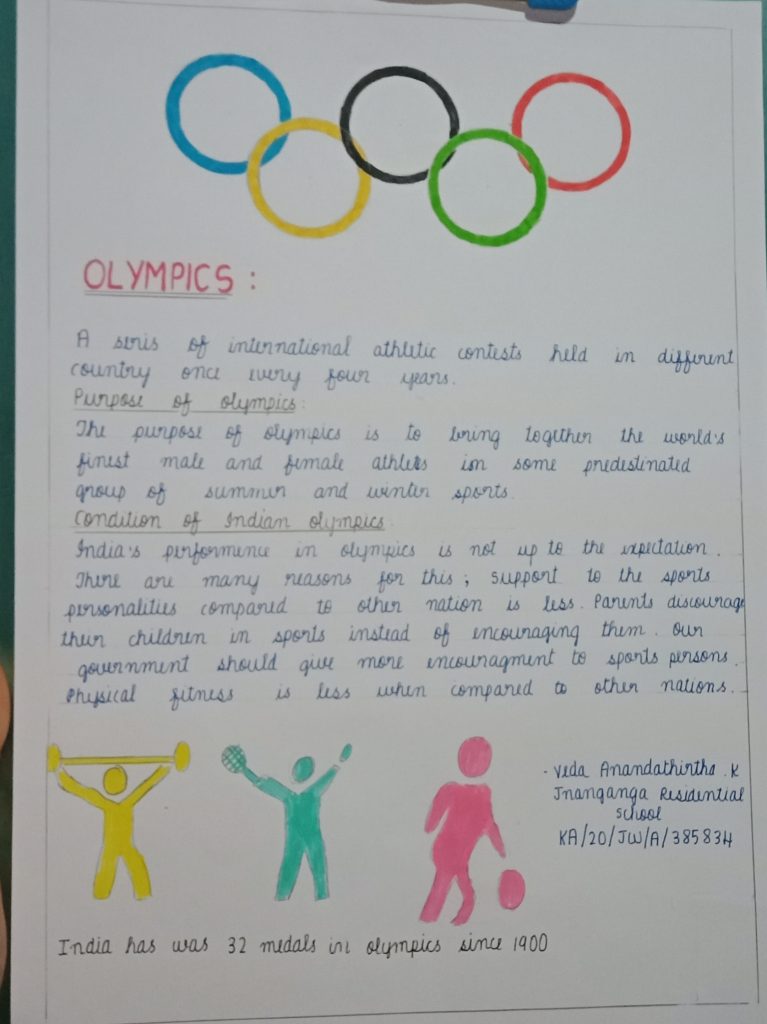 OLYMPICS :
A seris of international athletic contests held in different
country once every four years.
Purpose of olympics:
The purpose of olympics is to bring together the world's
finest male and female athlets in some predestinated
group of summer and winter sports.
Condition of Indian olympics.
India's performence in olympics is not up to the expectation.
There are many reasons for this; support to the sports
personalities compared to other nation is less. Parents discourage
their children in sports instead of encouraging them. our
government should give more encouragment to sports persons.
Physical fitness is less when compared to other nations.
- Veda Anandathirtha .K
Jnanganga Residential
school
KA/20/JW/A/385834
India has was 32 medals in olympics since 1900